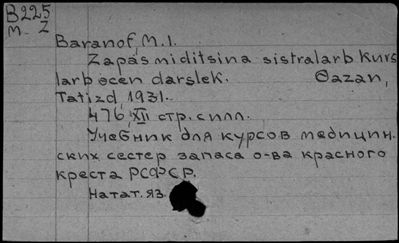 B225
M-Z
Baranof, M.I.
Zapas miditsina sistralarь kurs
larь ɵcen dərslek. Qazan,
Tatizd, 1931.
476, XII стр. с илл.
Учебник для курсов медицин.
ских сестер запаса о-ва красного
креста РСФСР.
На тат. яз.